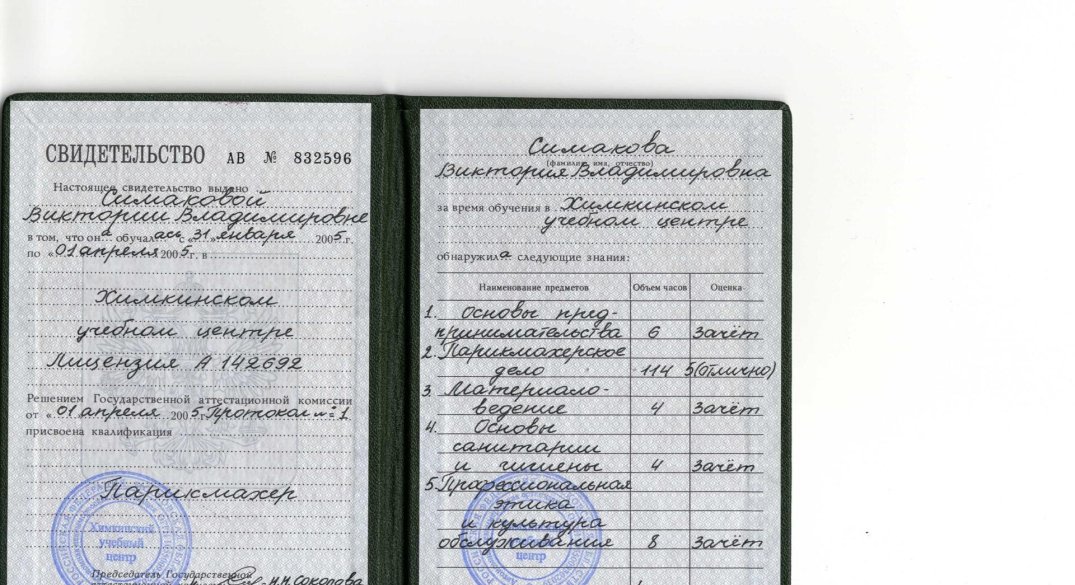 СВИДЕТЕЛЬСТВО АВ № 832596
Настоящее свидетельство выдано
Симаковой
Виктории Владимировне
в том, что он а обучал ась с «31» января 2005 г.
по «01 апреля 2005 г. в
Химкинском
учебном центре
Лицензия А 142692
Решением Государственной аттестационной комиссии
от «01 апреля 2005 г. Протокол № 1
присвоена квалификация
Парикмахер
Химкинский
учебный
центр
Председатель Государственной
Н.Н. Соколова
Симакова
(фамилия, имя, отчество)
Виктория Владимировна
за время обучения в Химкинском
учебном центре
обнаружил а следующие знания:
Наименование предметов Объем часов Оценка
1. Основы пред-
принимательства 6 Зачёт
2. Парикмахерское
дело 114 5(отлично)
3. Материало-
ведение 4 Зачёт
4. Основы
санитарии
и гигиены 4 Зачёт
5. Профессиональная
этика
и культура
обслуживания 8 Зачёт
центр